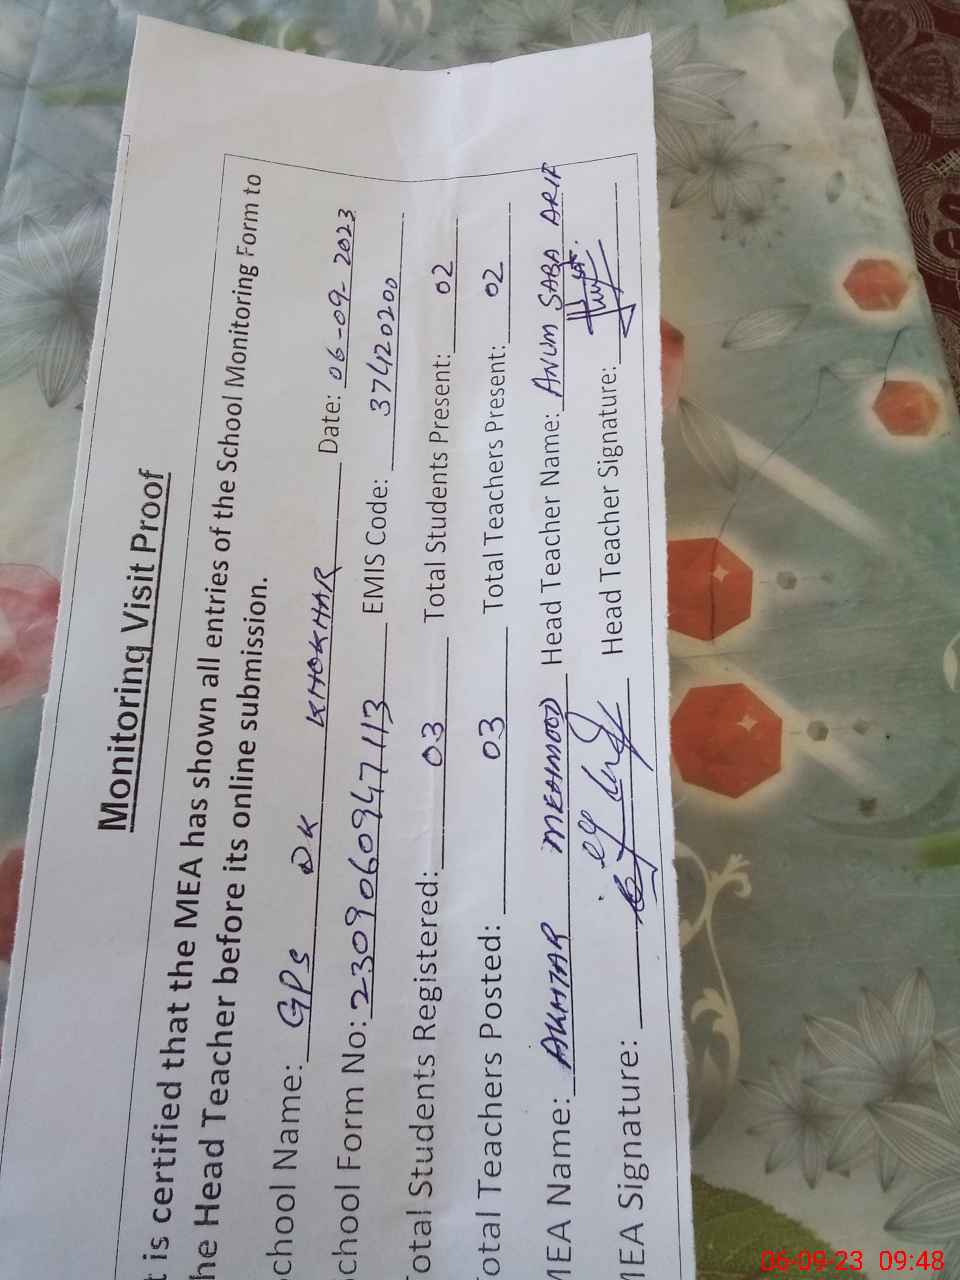 Monitoring Visit Proof
t is certified that the MEA has shown all entries of the School Monitoring Form to
he Head Teacher before its online submission.
chool Name: GPS DK KHOKHAR Date: 06-09-2023
chool Form No: 2309060947113 EMIS Code: 37420200
otal Students Registered: 03 Total Students Present: 02
otal Teachers Posted: 03 Total Teachers Present: 02
MEA Name: AKHTAR MEAHMOOD Head Teacher Name: ANUM SABA ARIF
MEA Signature: Head Teacher Signature:
06-09-23 09:48